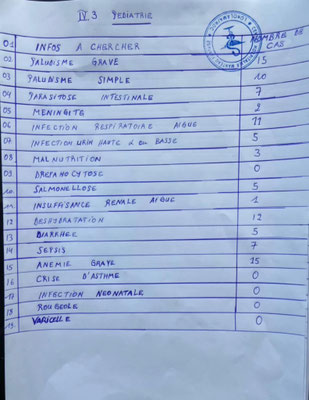 IV.3 PEDIATRIE
01 INFOS A CHERCHER NOMBRE DE CAS
02 PALUDISME GRAVE 15
03 PALUDISME SIMPLE 10
04 PARASITOSE INTESTINALE 7
05 MENINGITE 2
06 INFECTION RESPIRATOIRE AIGUE 11
07 INFECTION URIN HAUTE 2 OU BASSE 5
08 MALNUTRITION 3
09 DREPANOCYTOSE 0
10 SALMONELLOSE 5
11 INSUFFISANCE RENALE AIGUE 1
12 DESHYDRATATION 12
13 DIARRHEE 5
14 SEPSIS 7
15 ANEMIE GRAVE 15
16 CRISE D'ASTHME 0
17 INFECTION NEONATALE 0
18 ROUGEOLE 0
19 VARICELLE 0